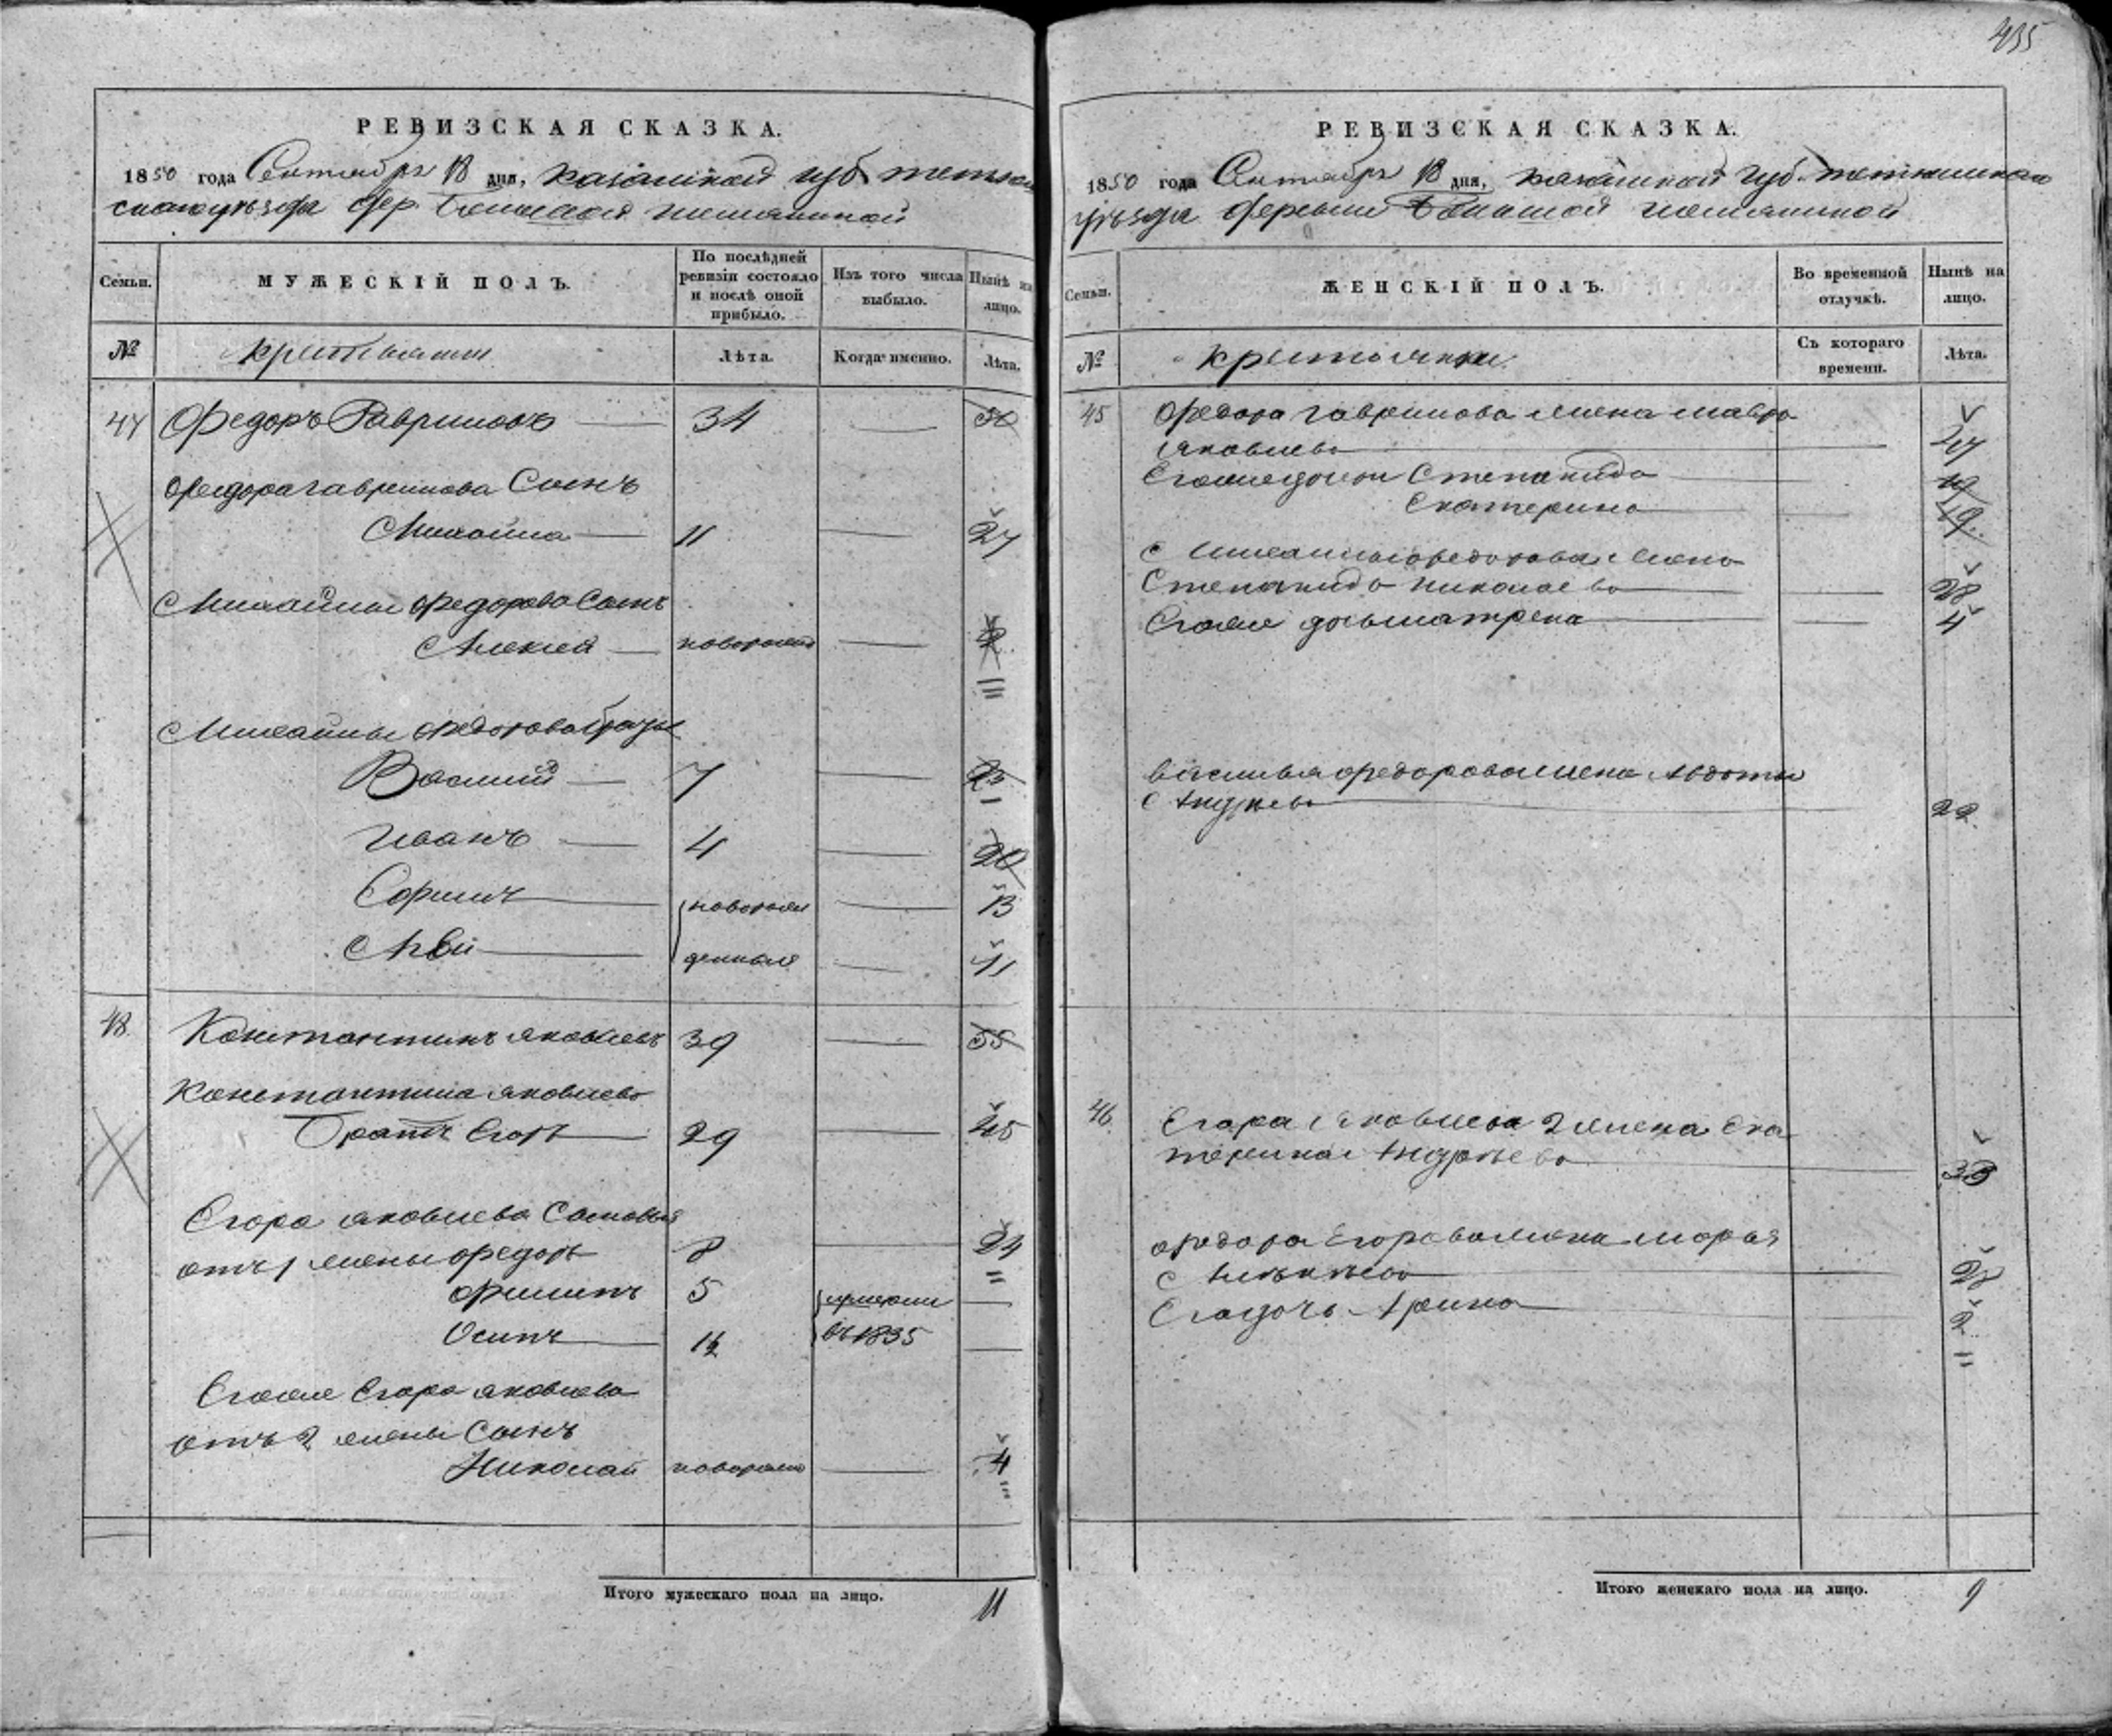 435
РЕВИЗСКАЯ СКАЗКА.
1850 года Сентября 18 дня, Казанской губ Тетюш
скаго уѣзда дер. Большой
Семьи.
МУЖЕСКІЙ ПОЛЪ.
По послѣдней ревизіи состояло и послѣ оной прибыло.
Изъ того числа выбыло.
Нынѣ на лицо.
№
Крестьянъ
Лѣта.
Когда именно.
Лѣта.
Федоръ Гавриловъ 34 50
Федора Гаврилова Сынъ
Михайла 11 27
Михайлы Федорова Сынъ
Алексей новорож
Михайлы Федорова братья
Василий 7 23
Иванъ 4 20
новорож 13
денные 11
48 Константинъ Яковлевъ 39 55
Константина Яковлева
братъ Егоръ 29 45
Егора Яковлева Сыновья
отъ 1 жены Федоръ 8 24
Филипъ 5 умерли
Осипъ 1½ въ 1835
Егоже Егора Яковлева
отъ 2 жены Сынъ
Николай новорож 4
Итого мужескаго пола на лицо. 11
РЕВИЗСКАЯ СКАЗКА.
1850 года Сентября 18 дня, Казанской Губ. Тетюшскаго
уѣзда деревни Большой
Семьи.
ЖЕНСКІЙ ПОЛЪ.
Во временной отлучкѣ.
Нынѣ на лицо.
№
Крестьянки
Съ котораго времени.
Лѣта.
45 Федора Гаврилова жена Мавра
Яковлева 47
Егоже дочери Степанида
Екатерина 19
Михайлы Федорова жена
Степанида Николаева 28
Егоже дочь Матрена 4
Василья Федорова жена Авдотья
Андреева 22
46 Егора Яковлева 2 жена Ека
терина Андреева
Федора Егорова жена Марья
Его дочь Арина 2
Итого женскаго пола на лицо. 9